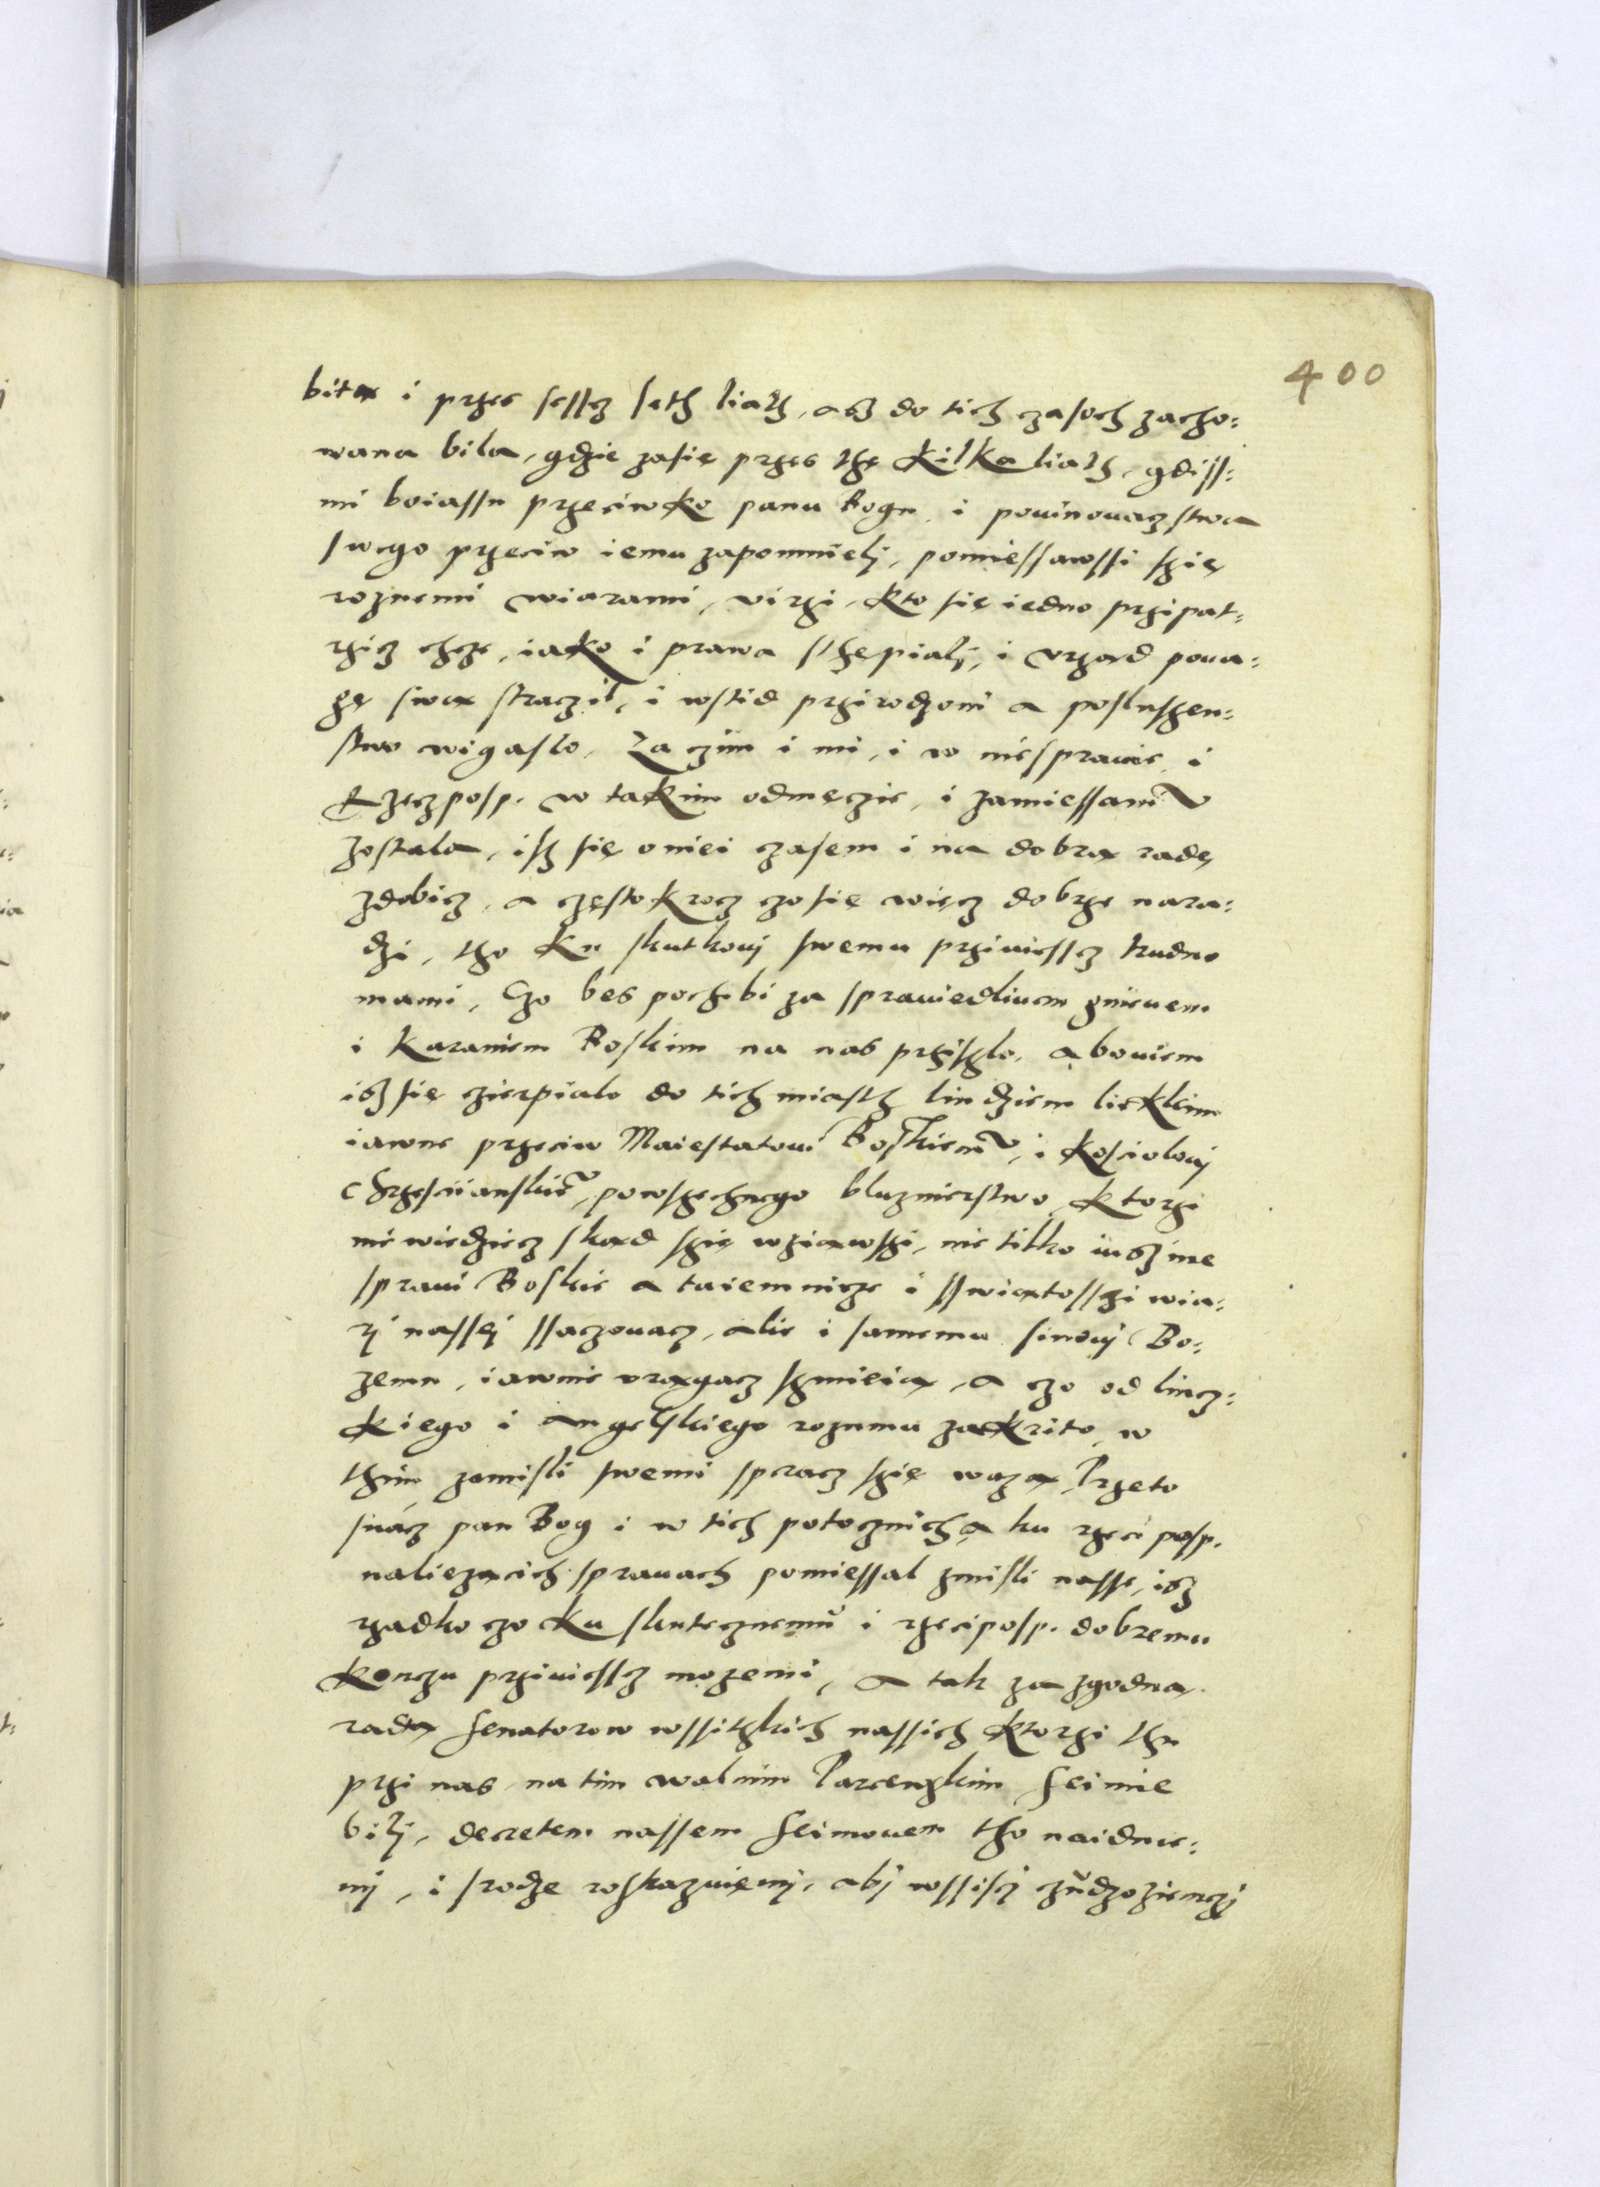 400
bitą i przes sescz seth liath, asz do tich czasoch zacho:
wana bila, gdzie zasię przes thę kilka liath, gdiss:
mi boiassn przeciwko panu Bogu, i powinovaczstwa
swego przeciw iemu zapomnielj, pomiessawssi szię
roznemi wiarami, virzi, kto się iedno przipat:
rzicz chcze, iako i prawa sthępialj, i vrząd pova:
gę swą straczil, i wstid przirodzoni a poslušen:
stwo wigaslo, Za czim i mi, i w niesprawie, i
Rzeczposp. w takim odmęczie, i zamiessaniu
zostala, isz się o niei czasem i na dobrą radę
zdobicz, a częstokrocz czo się więcz dobrze nara:
dzi, tho ku skutkovj swemu prziviescz trudno
mami, Czo bes pochibi za sprawiedlivem gnievem
i karaniem Boskim na nas prziszlo, aboviem
isz się czierpialo do tich miasth liudziem liekkim
iawne przeciw Maiestatowi Boskiemu, i kosciolowj
chrzesciianskiemu, powszechnego bluznierstwo, ktorzi
nie wiedziecz skąd szię wziąwszi, nie tilko iusz ine
spravi Boskie a taiemnicze i sswiątosszi wia:
rj nassej ssaczovacz, alie i samemu sinovj Bo:
zemu, iawnie vrągacz szmieią, a czo od liucz:
kiego i Angelskiego rozumu zackrito, w
thim zmisli swemi spieracz szię ważą, Przeto
snácz pan Bog i w tich potocznich, a ku rzeci posp.
naliezącich spravach pomiessal zmisli nasse, isz
rzadko czo ku skutecznemu i rzeciposp. dobremu
konczu prziviescz możemi, A tak za zgodną
radą senatorow wssitzkich nassich ktorzi thu
przi nas na tim walnim Parcenzkim seimie
bilj, decretem nassem seimovem tho naidue:
mj, i srodze roskazuięmj, abj wssiscj czudzoziemczj